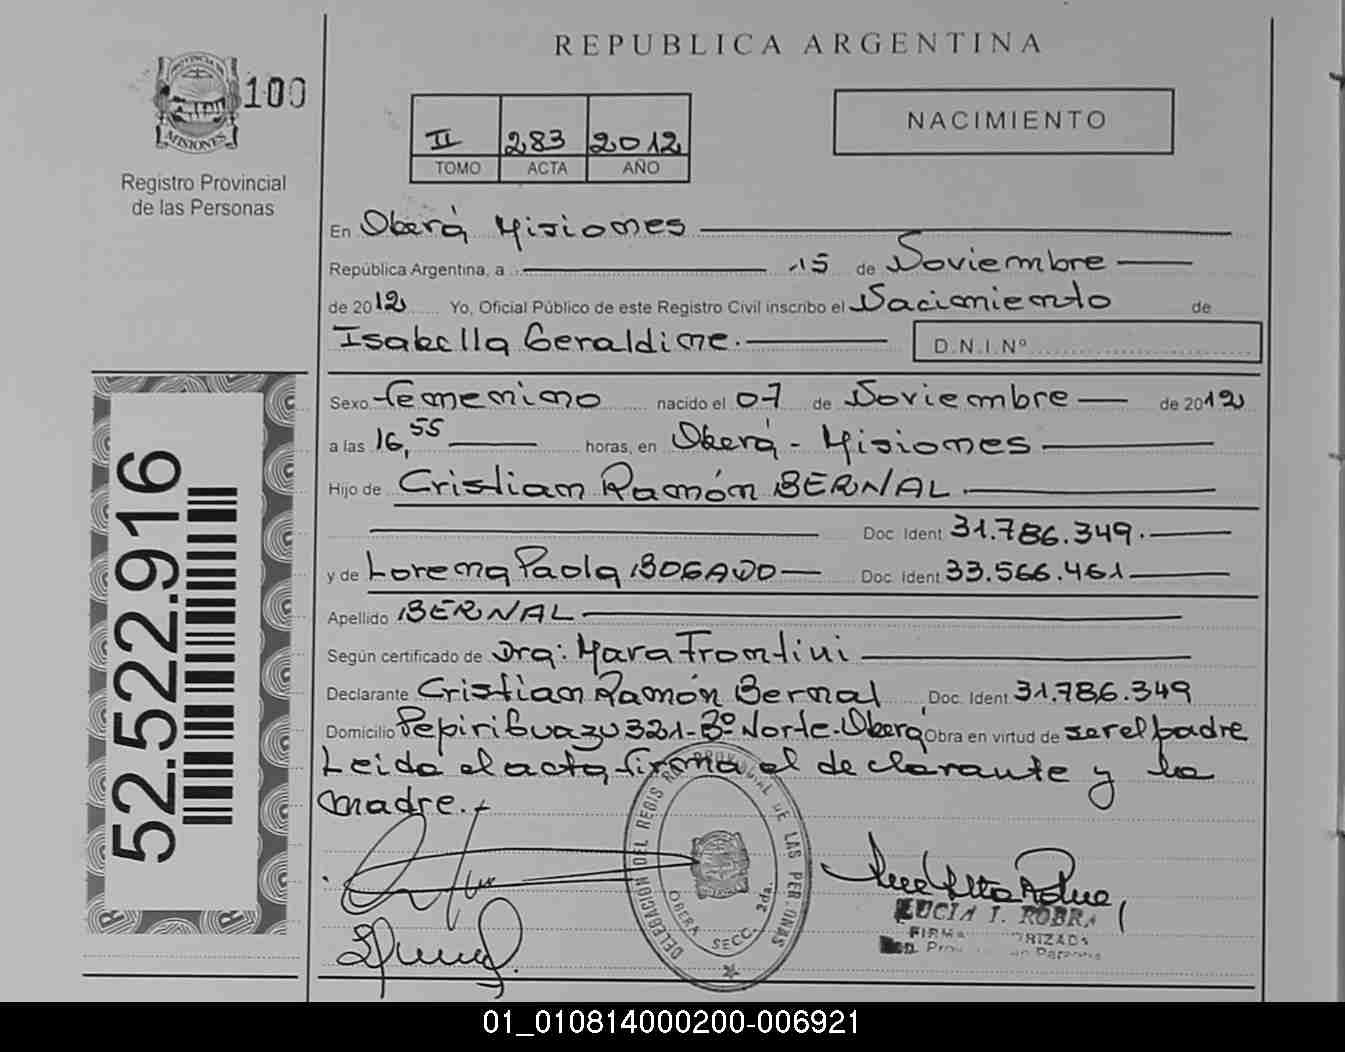 REPUBLICA ARGENTINA
PROVINCIA DE
MISIONES
100
Registro Provincial
de las Personas
II 283 2012
TOMO ACTA AÑO
NACIMIENTO
En Oberá Misiones
República Argentina, a 15 de Noviembre
de 2012 Yo, Oficial Público de este Registro Civil inscribo el Nacimiento de
Isabella Geraldine.
D.N.I.Nº
Sexo femenino nacido el 07 de Noviembre de 2012
a las 16,55 horas, en Oberá - Misiones
Hijo de Cristian Ramón BERNAL
Doc. Ident. 31.786.349.
y de Lorena Paola BOGADO Doc. Ident. 33.566.461
Apellido BERNAL
Según certificado de Dra: Mara Frontini
Declarante Cristian Ramón Bernal Doc. Ident. 31.786.349
Domicilio Pepiri Guazu 321-Bº Norte-Oberá Obra en virtud de ser el padre
Leida el acta firma el declarante y la
madre.
52.522.916
DELEGACION DEL REGISTRO PROVINCIAL DE LAS PERSONAS
OBERA SECC. 2da.
LUCIA I. ROBRA
01_010814000200-006921